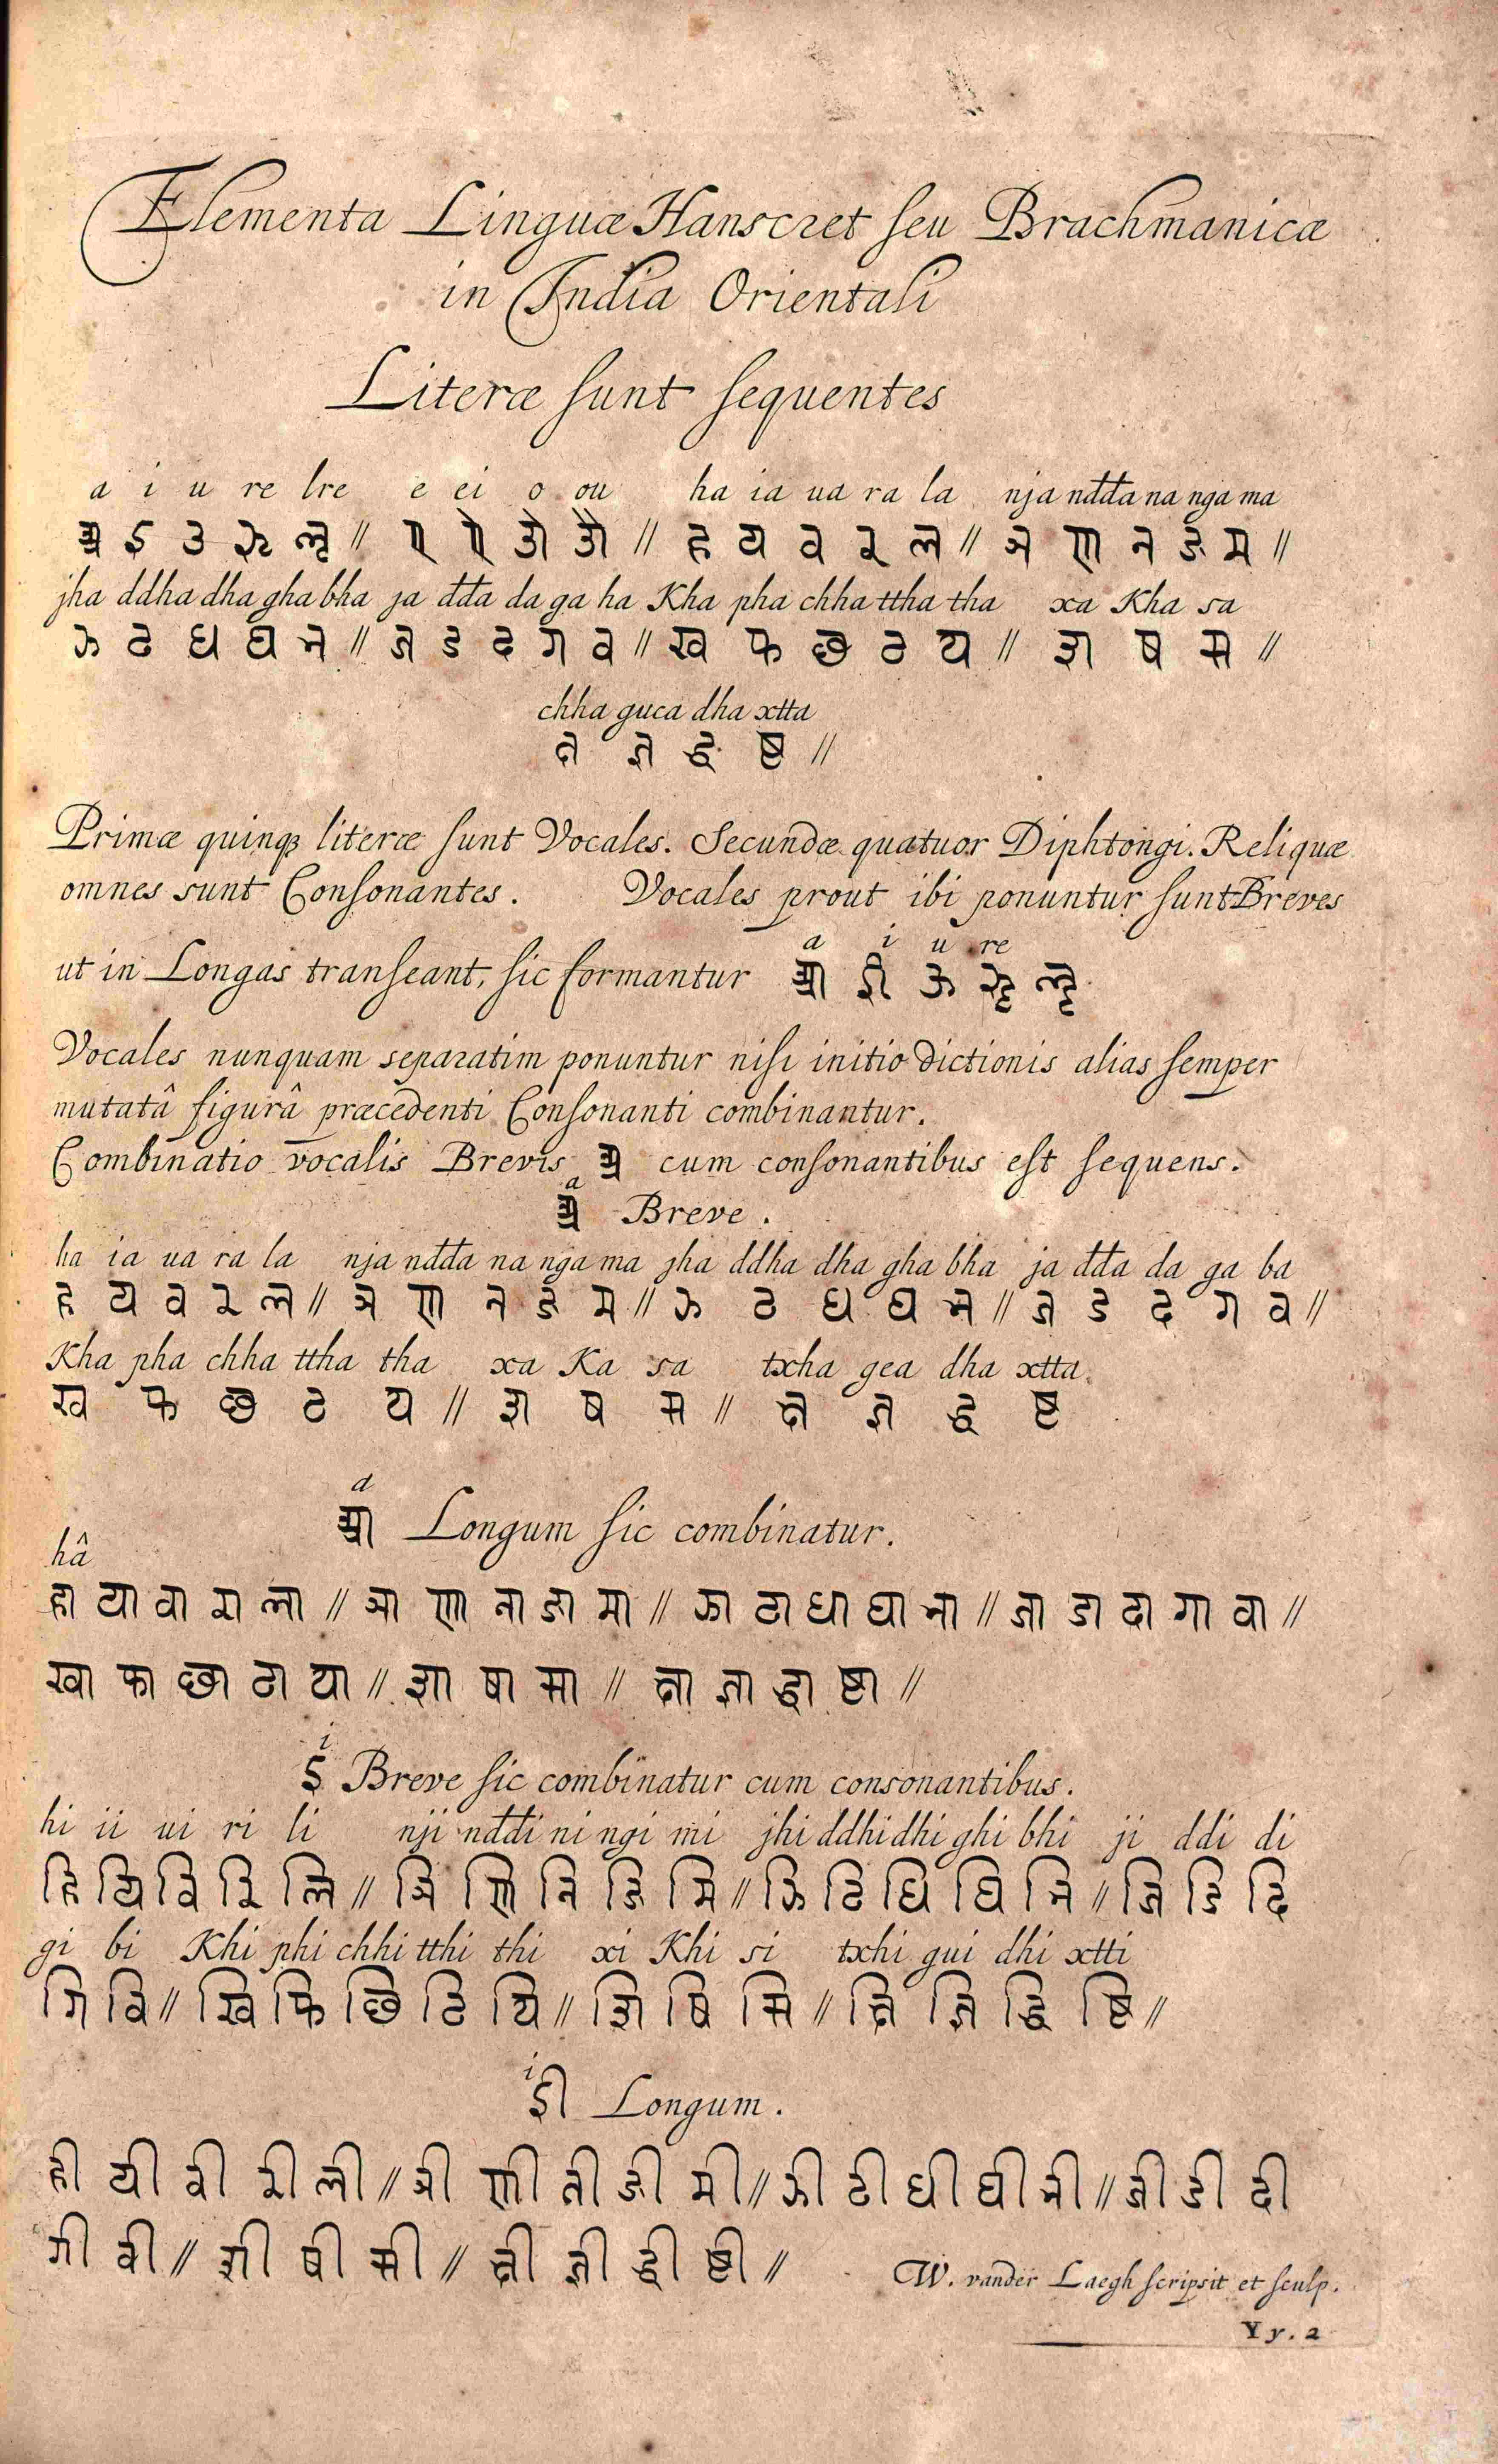 Elementa Linguæ Hanscret seu Brachmanicæ
in India Orientali
Literæ sunt sequentes
a i u re lre e ei o ou ha ia ua ra la nja ndda na nga ma
अ इ उ ऋ ऌ // ए ऐ ओ औ // ह य व र ल // ञ ण न ङ म //
jha ddha dha gha bha ja dda da ga ha Kha pha chha ttha tha xa Kha sa
झ ढ ध घ भ // ज ड द ग व // ख फ छ ठ थ // श ष स //
chha guca dha xtta
क्ष ज्ञ द्ध ष्ट //
Primæ quinqꝫ literæ sunt Vocales. Secundæ quatuor Diphtongi. Reliquæ
omnes sunt Consonantes. Vocales prout ibi ponuntur sunt Breves
a i u re
ut in Longas transeant, sic formantur आ ई ऊ ॠ ॡ
Vocales nunquam separatim ponuntur nisi initio dictionis alias semper
mutatâ figurâ præcedenti Consonanti combinantur.
Combinatio vocalis Brevis अ cum consonantibus est sequens.
a
अ Breve.
ha ia ua ra la nja ndda na nga ma jha ddha dha gha bha ja dda da ga ba
ह य व र ल // ञ ण न ङ म // झ ढ ध घ भ // ज ड द ग व //
Kha pha chha ttha tha xa Ka sa txha gea dha xtta
ख फ छ ठ थ // श ष स // क्ष ज्ञ द्ध ष्ट
a
आ Longum sic combinatur.
hâ
हा या वा रा ला // ञा णा ना ङा मा // झा ढा धा घा भा // जा डा दा गा वा //
खा फा छा ठा था // शा षा सा // क्षा ज्ञा द्धा ष्टा //
i
इ Breve sic combinatur cum consonantibus.
hi ii ui ri li nji nddi ni ngi mi jhi ddhi dhi ghi bhi ji ddi di
हि यि वि रि लि // ञि णि नि ङि मि // झि ढि धि घि भि // जि डि दि
gi bi Khi phi chhi tthi thi xi Khi si txhi gui dhi xtti
गि वि // खि फि छि ठि थि // शि षि सि // क्षि ज्ञि द्धि ष्टि //
i
ई Longum.
ही यी वी री ली // ञी णी नी ङी मी // झी ढी धी घी भी // जी डी दी
गी वी // शी षी सी // क्षी ज्ञी द्धी ष्टी //
W. vander Laegh scripsit et sculp.
Yy. 2